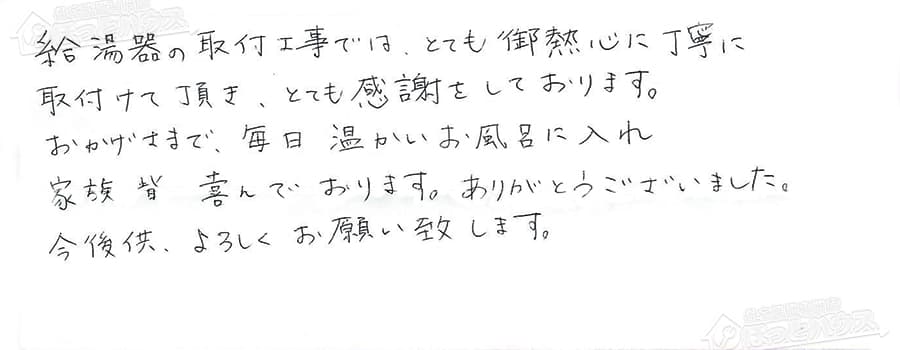 給湯器の取付工事では、とても御熱心に丁寧に
取付けて頂き、とても感謝をしております。
おかげさまで、毎日 温かいお風呂に入れ
家族 皆 喜んでおります。ありがとうございました。
今後供、よろしくお願い致します。